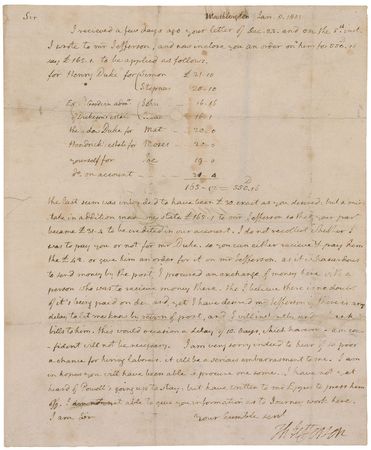 Sir Washington Jan. 5. 1801
I received a few days ago your letter of Dec. 23. and on the 3d. inst.
I wrote to mr Jefferson, and now inclose you an order on him for 550.16
say £165.1. to be applied as follows.
for Henry Duke for Simon £ 21-10
Stepney 20-10
John 16-16
Isaac
the Duke for Mat 20-0
Hendrick estate for Moses 20-0
yourself for Joe 19-0
do. on account
= 550.16
the last sum was intended to have been £30. exact as you desired, but a mis-
take in addition made me state £165-1. to mr Jefferson so that your part
became £31-4 to be credited in our account. I do not recollect whether I
was to pay you or not for mr Duke. so you can either receive & pay them
the £42. or give him an order for it on mr Jefferson. as it is hazardous
to send money by the post I procured an exchange of money here with a
person who was to receive money there. tho I believe there is no doubt
of it's being paid on demand, yet I have desired mr Jefferson if there is any
delay to let me know by return of post, and I will
bills to him. this would occasion a delay of 10. days, which however I am con-
fident will not be necessary. I am very sorry indeed to hear of so poor
a chance for hiring labourers. it will be a serious embarrasment to me. I am
in hopes you will have been able to procure some. I have not yet
heard of Powell's going us to stay, but have written to mr Eppes to press him
off. I am not able to give you information as to journey work here.
I am Sir Your humble servt
Th: Jefferson